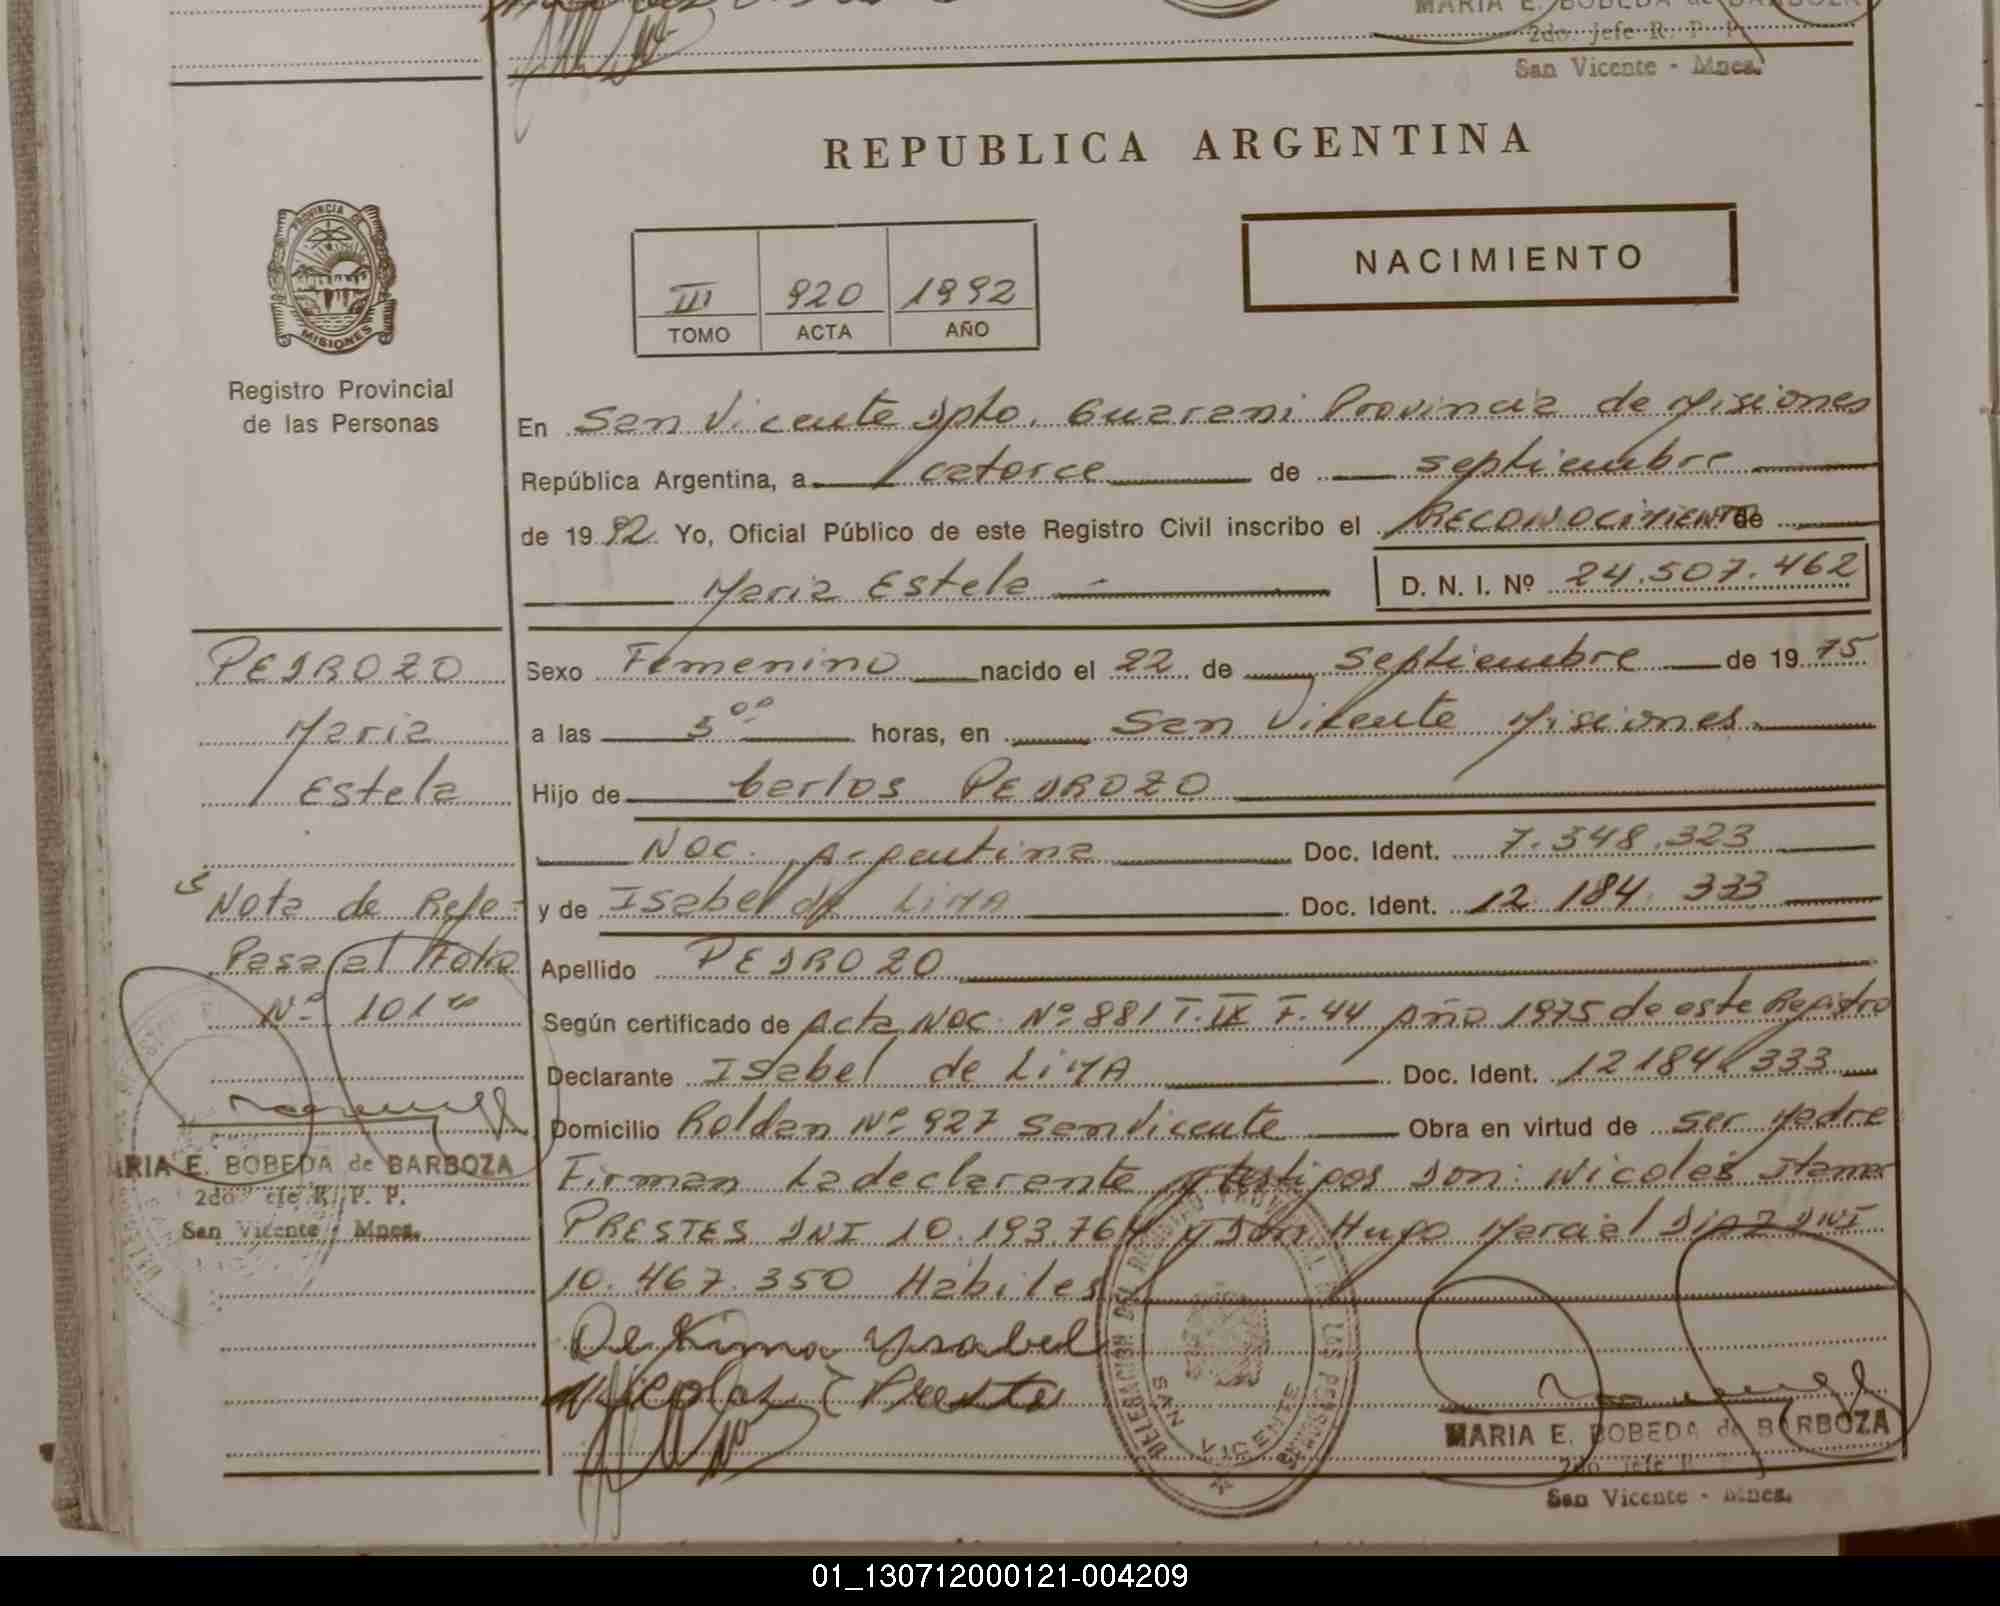 MARIA E. BOBEDA de BARBOZA
2do. jefe R. P. P.
San Vicente - Mnes.
REPUBLICA ARGENTINA
PROVINCIA DE
MISIONES
Registro Provincial
de las Personas
III 920 1992
TOMO ACTA AÑO
NACIMIENTO
En San Vicente Dpto. Guarani Provincia de Misiones
República Argentina, a catorce de septiembre
de 1992 Yo, Oficial Público de este Registro Civil inscribo el RECONOCIMIENTO de
Maria Estela D. N. I. Nº 24.507.462
PEDROZO
Maria
Estela
Sexo Femenino nacido el 22 de septiembre de 1975
a las 5 00 horas, en San Vicente Misiones
Hijo de Carlos PEDROZO
Nac. Argentina Doc. Ident. 7.348.323
y de Isabel de LIMA Doc. Ident. 12.184.333
Apellido PEDROZO
Según certificado de Acta Nac. Nº 881 T. IX F. 44 Año 1975 de este Registro
Declarante Isabel de LIMA Doc. Ident. 12184.333
Domicilio Roldan Nº 927 San Vicente Obra en virtud de ser Madre
Firman La declarante y testigos Don: Nicolás Itamar
PRESTES DNI 10.193.764 y Don Hugo Maraél DIAZ DNI
10.467.350 Habiles
De Lima Ysabel
Nicolas I Prestes
Nota de Refe-
Pasa al Folio
Nº 101
MARIA E. BOBEDA de BARBOZA
2do jefe R. P. P.
San Vicente - Mnes.
DELEGACION DEL REGISTRO PROVINCIAL DE LAS PERSONAS
SAN VICENTE
MARIA E. BOBEDA de BARBOZA
2do jefe R.
San Vicente - Mnes.
01_130712000121-004209